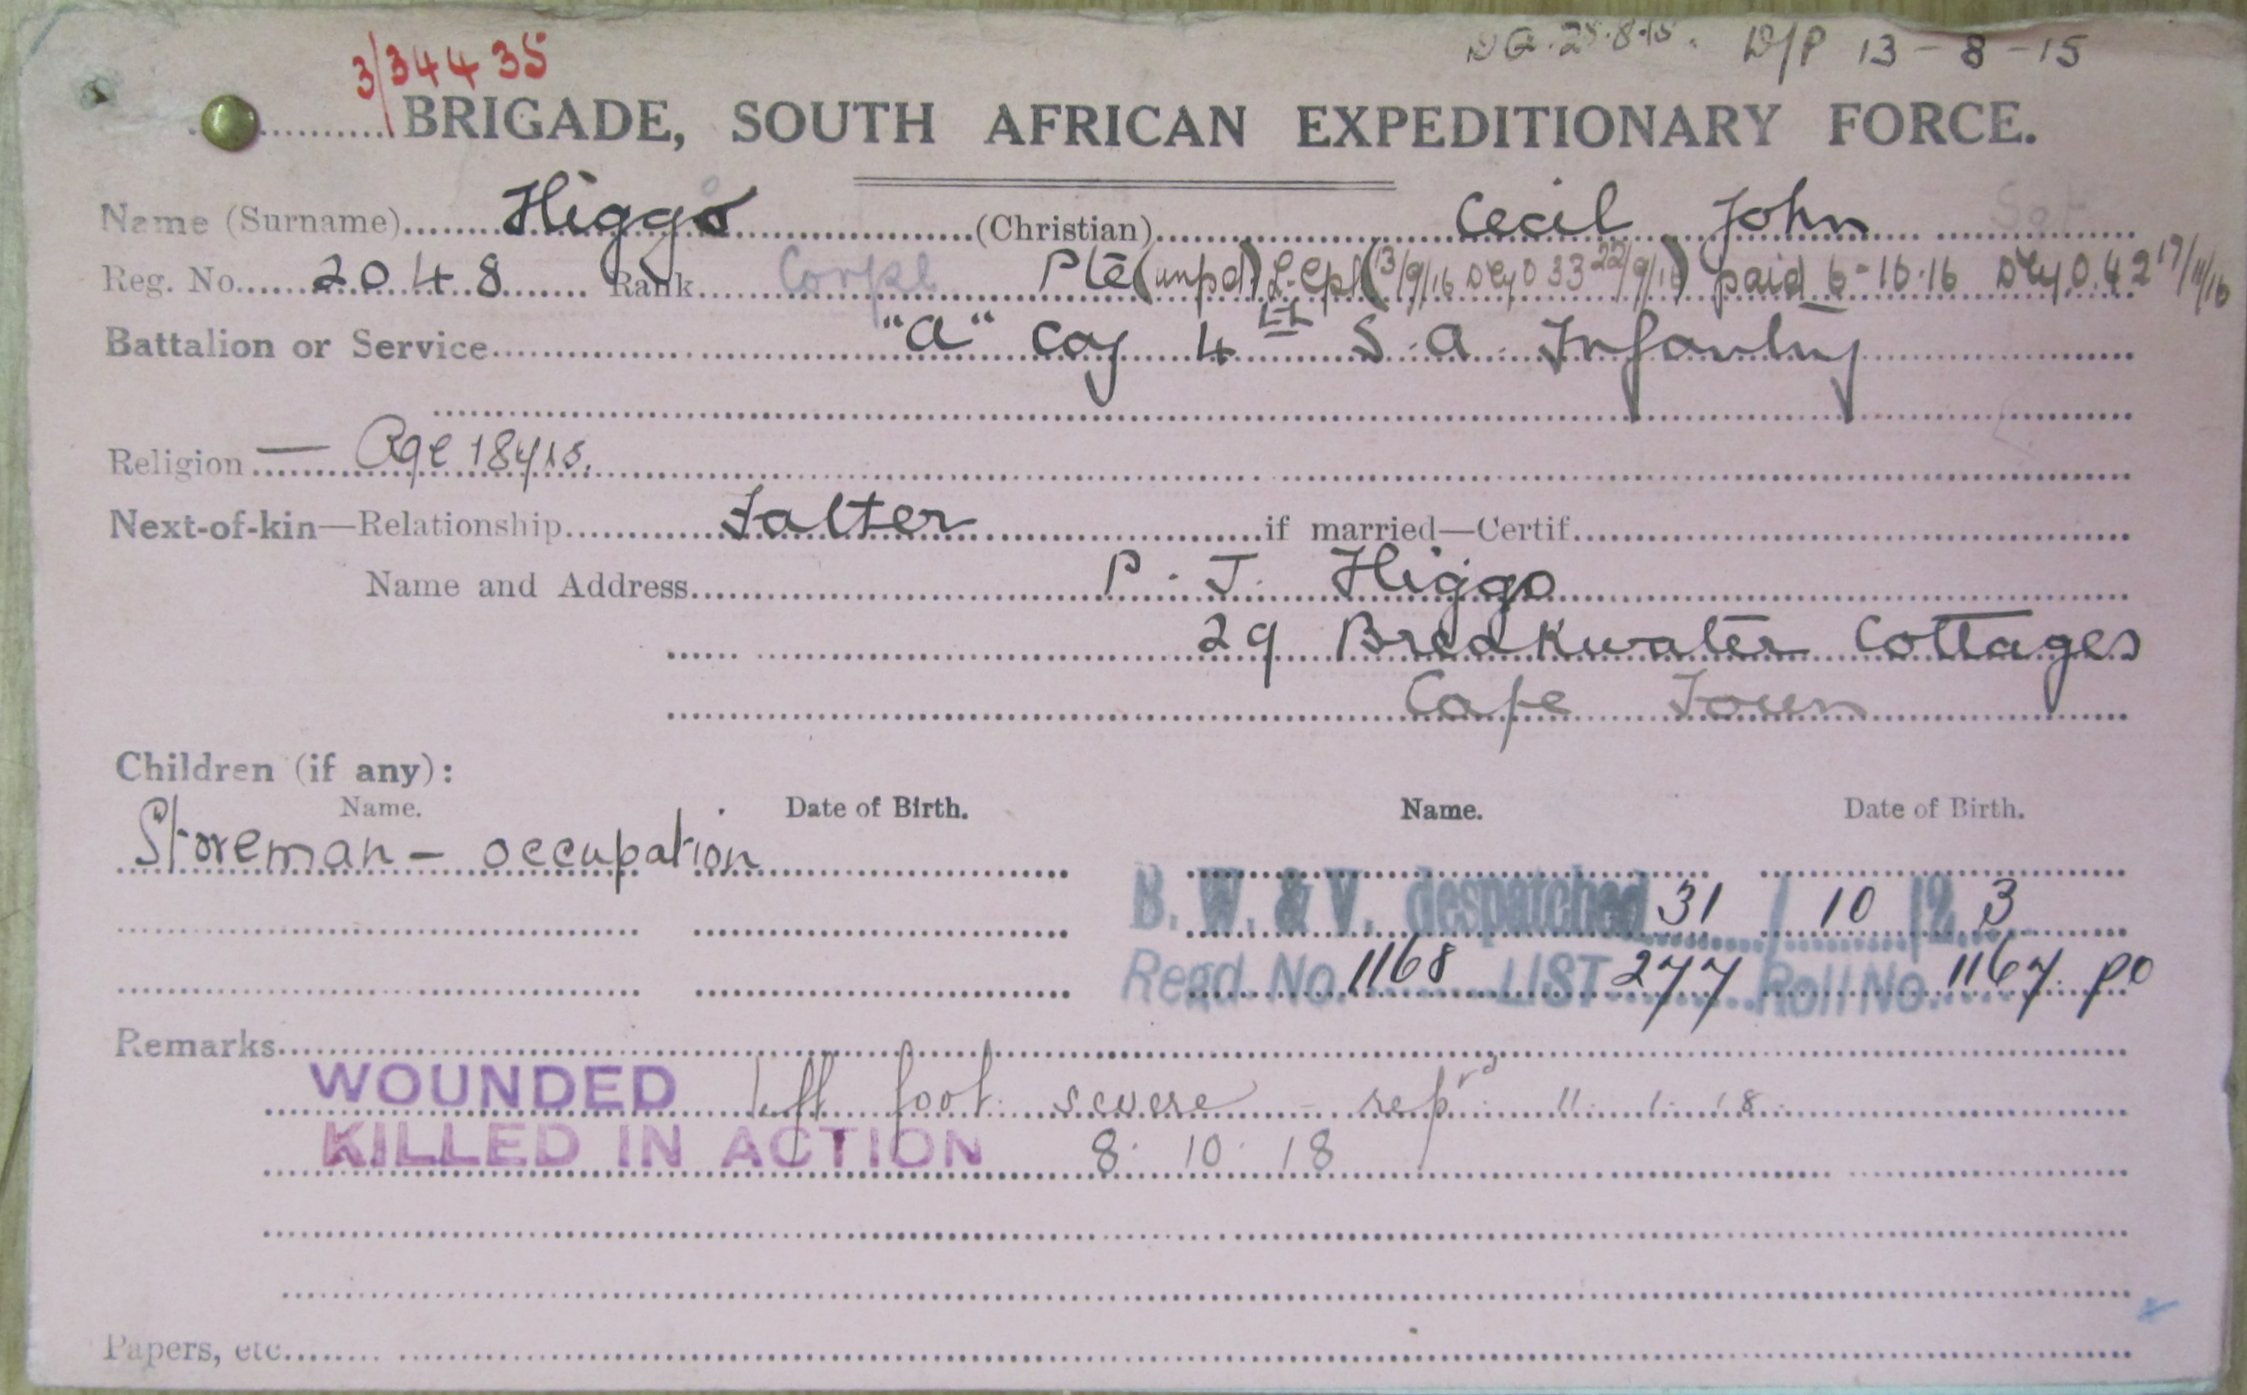 3/34435 DG. 28.8.15. D/P 13-8-15
BRIGADE, SOUTH AFRICAN EXPEDITIONARY FORCE.
Name (Surname) Higgo (Christian) Cecil John Sgt
Reg. No. 2048 Rank Corpl Pte (unpd) L-Cpl (13/9/16 Dly O 33 22/9/16) paid 6-10-16 Dly. O. 42 17/11/16
Battalion or Service "A" Coy 4th S.A. Infantry
Religion — Age 18 yrs.
Next-of-kin—Relationship Father if married—Certif.
Name and Address P. J. Higgo
29 Breakwater Cottages
Cape Town
Children (if any):
Name. Date of Birth. Name. Date of Birth.
Storeman - occupation
B. W. & V. despatched 31 / 10 / 23
Regd. No. 1168 LIST 277 Roll No. 1167. PO
Remarks
WOUNDED left foot severe - repd 11.1.18.
KILLED IN ACTION 8.10.18
Papers, etc.